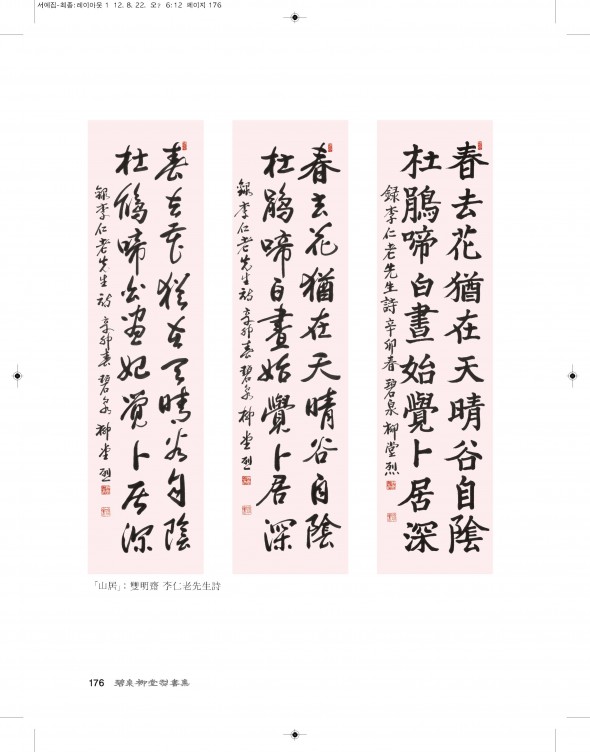 서예집-최종:레이아웃 1 12. 8. 22. 6:12 페이지 176
春去花猶在天晴谷自陰
杜鵑啼白晝始覺卜居深
録李仁老先生詩 辛卯春 碧泉 柳堂烈
春去花猶在天晴谷自陰
杜鵑啼白晝始覺卜居深
録李仁老先生詩 辛卯春 碧泉 柳堂烈
春去花猶在天晴谷自陰
杜鵑啼白晝始覺卜居深
録李仁老先生詩 辛卯春 碧泉 柳堂烈
「山居」: 雙明齋 李仁老先生詩
176 碧泉柳堂烈書集